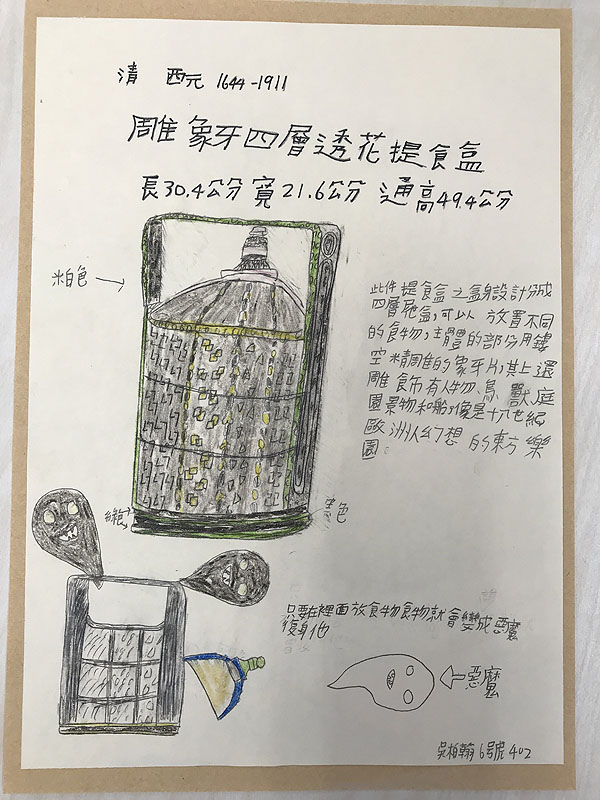 清 西元 1644-1911
雕象牙四層透花提食盒
長30.4公分 寬21.6公分 通高49.4公分
米白色
此件提食盒之盒身設計分成
四層屜盒,可以放置不同
的食物,主體的部分用鏤
空精雕的象牙片,其上還
雕飾有人物、鳥獸、庭
園景物和船,像是十八世紀
歐洲人幻想的東方樂
園
綠色
黑色
只要在裡面放食物食物就會變成惡魔
復身他
惡魔
吳柏翰 6號 402